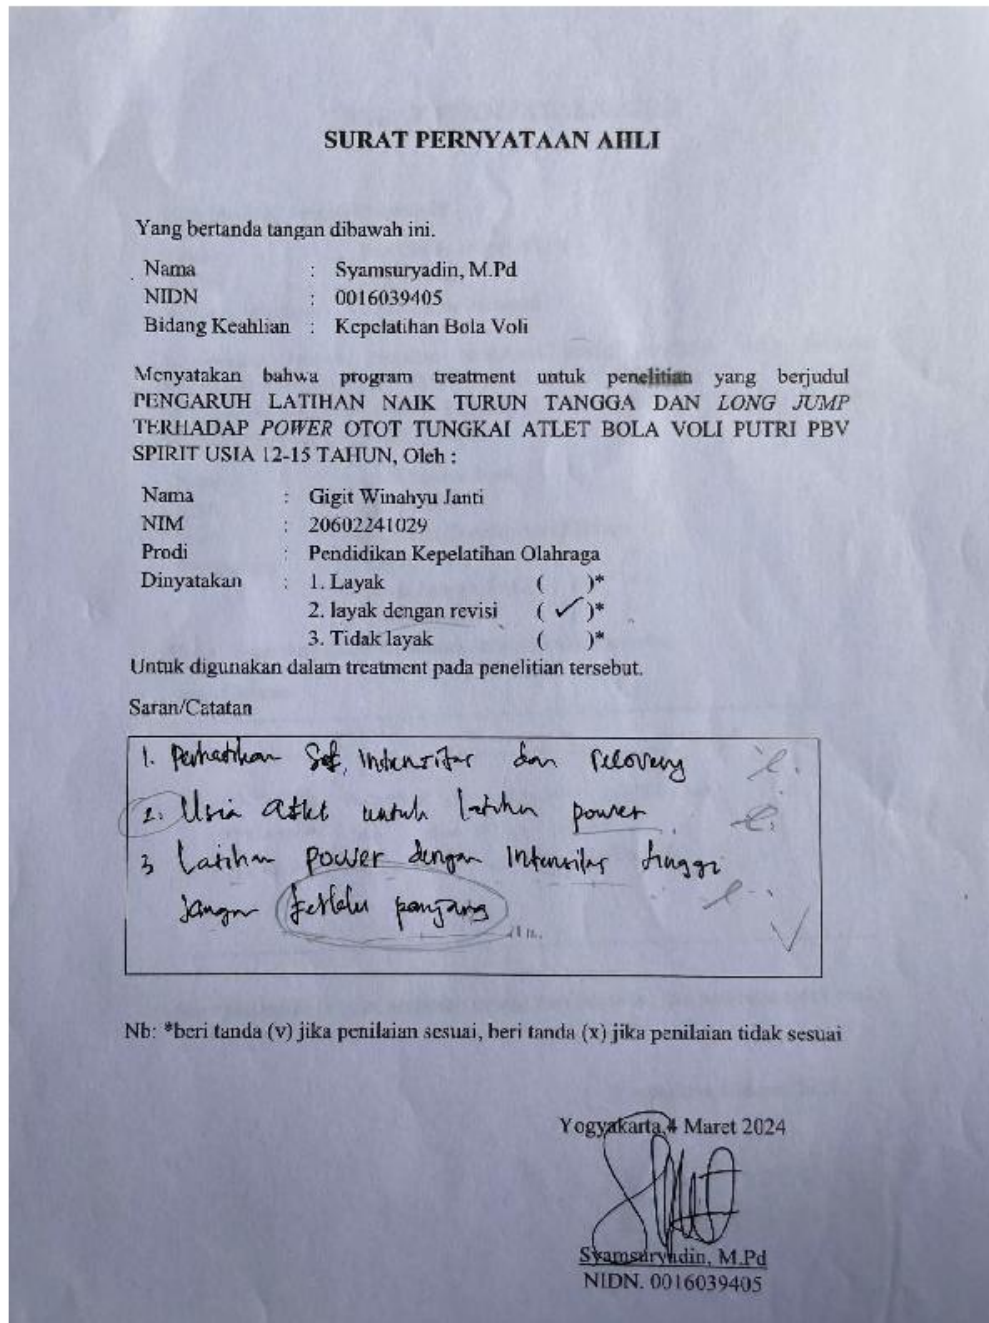 SURAT PERNYATAAN AHLI
Yang bertanda tangan dibawah ini.
Nama : Syamsuryadin, M.Pd
NIDN : 0016039405
Bidang Keahlian : Kepelatihan Bola Voli
Menyatakan bahwa program treatment untuk penelitian yang berjudul
PENGARUH LATIHAN NAIK TURUN TANGGA DAN LONG JUMP
TERHADAP POWER OTOT TUNGKAI ATLET BOLA VOLI PUTRI PBV
SPIRIT USIA 12-15 TAHUN, Oleh :
Nama : Gigit Winahyu Janti
NIM : 20602241029
Prodi : Pendidikan Kepelatihan Olahraga
Dinyatakan : 1. Layak ( )*
2. layak dengan revisi ( ✓ )*
3. Tidak layak ( )*
Untuk digunakan dalam treatment pada penelitian tersebut.
Saran/Catatan
1. Perhatikan Set, Intensitas dan recovery
2. Usia atlet untuk latihan power
3 Latihan power dengan Intensitas tinggi
Jangan terlalu panjang
Nb: *beri tanda (v) jika penilaian sesuai, beri tanda (x) jika penilaian tidak sesuai
Yogyakarta,4 Maret 2024
Syamsuryadin, M.Pd
NIDN. 0016039405